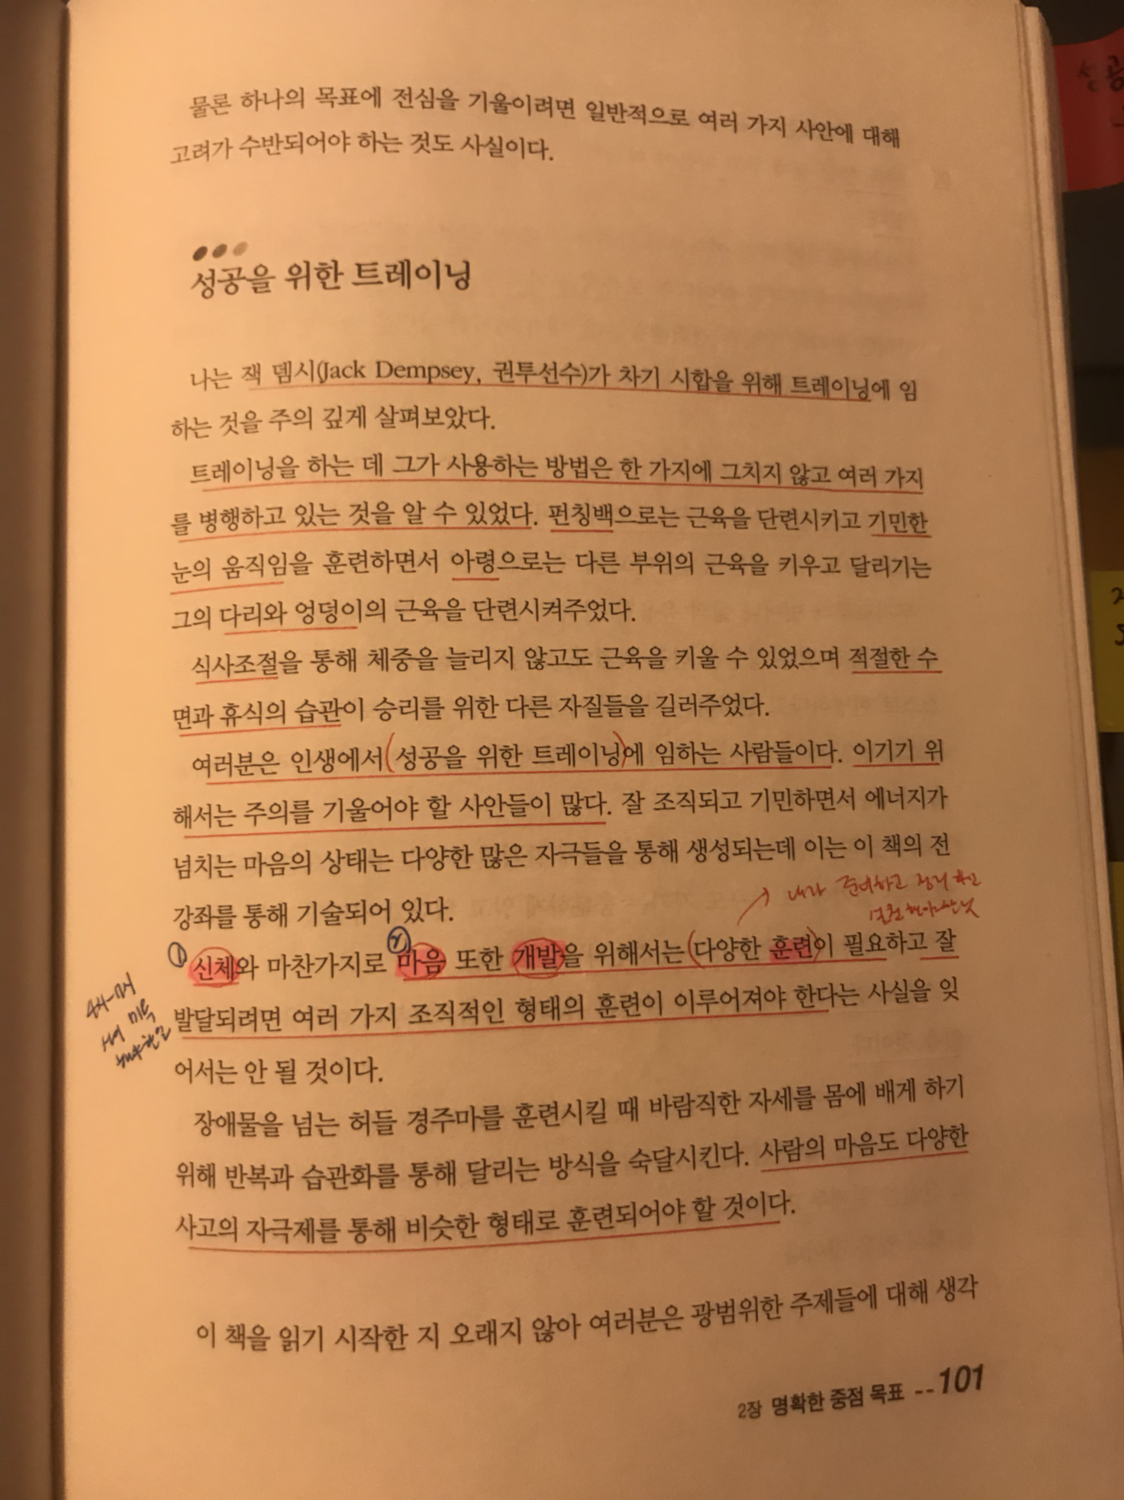 물론 하나의 목표에 전심을 기울이려면 일반적으로 여러 가지 사안에 대해
고려가 수반되어야 하는 것도 사실이다.
성공을 위한 트레이닝
나는 잭 뎀시(Jack Dempsey, 권투선수)가 차기 시합을 위해 트레이닝에 임
하는 것을 주의 깊게 살펴보았다.
트레이닝을 하는 데 그가 사용하는 방법은 한 가지에 그치지 않고 여러 가지
를 병행하고 있는 것을 알 수 있었다. 펀칭백으로는 근육을 단련시키고 기민한
눈의 움직임을 훈련하면서 아령으로는 다른 부위의 근육을 키우고 달리기는
그의 다리와 엉덩이의 근육을 단련시켜주었다.
식사조절을 통해 체중을 늘리지 않고도 근육을 키울 수 있었으며 적절한 수
면과 휴식의 습관이 승리를 위한 다른 자질들을 길러주었다.
여러분은 인생에서 성공을 위한 트레이닝에 임하는 사람들이다. 이기기 위
해서는 주의를 기울어야 할 사안들이 많다. 잘 조직되고 기민하면서 에너지가
넘치는 마음의 상태는 다양한 많은 자극들을 통해 생성되는데 이는 이 책의 전
강좌를 통해 기술되어 있다.
내가 준비하고
① ②
신체와 마찬가지로 마음 또한 개발을 위해서는 (다양한 훈련)이 필요하고 잘
발달되려면 여러 가지 조직적인 형태의 훈련이 이루어져야 한다는 사실을 잊
어서는 안 될 것이다.
장애물을 넘는 허들 경주마를 훈련시킬 때 바람직한 자세를 몸에 배게 하기
위해 반복과 습관화를 통해 달리는 방식을 숙달시킨다. 사람의 마음도 다양한
사고의 자극제를 통해 비슷한 형태로 훈련되어야 할 것이다.
이 책을 읽기 시작한 지 오래지 않아 여러분은 광범위한 주제들에 대해 생각
2장 명확한 중점 목표 --101
성공